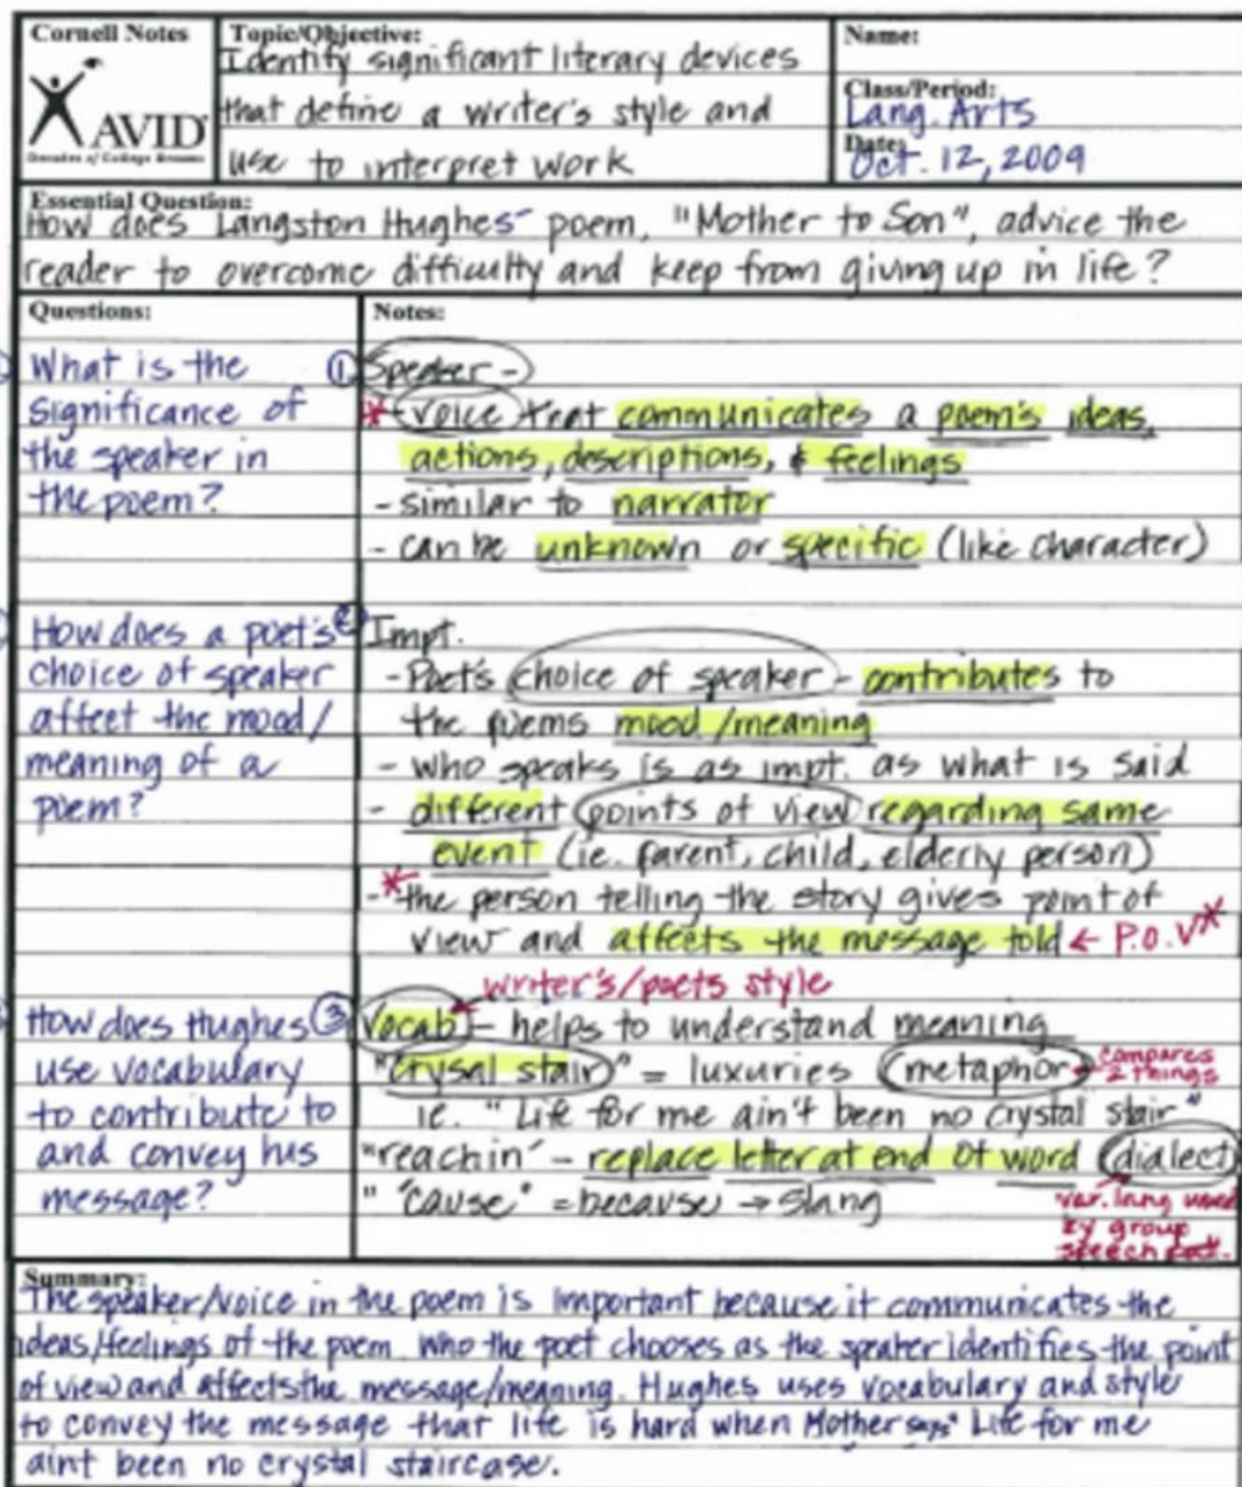 Cornell Notes
AVID
Decades of College Dreams
Topic/Objective:
Identify significant literary devices
that define a writer's style and
use to interpret work
Name:
Class/Period:
Lang. Arts
Date:
Oct. 12, 2009
Essential Question:
How does Langston Hughes' poem, "Mother to Son", advice the
reader to overcome difficulty and keep from giving up in life?
Questions:
What is the
significance of
the speaker in
the poem?
How does a poet's
choice of speaker
affect the mood/
meaning of a
poem?
How does Hughes
use vocabulary
to contribute to
and convey his
message?
Notes:
① Speaker -
* - voice that communicates a poem's ideas,
actions, descriptions, & feelings
- similar to narrator
- can be unknown or specific (like character)
② Impt.
- Poet's choice of speaker - contributes to
the poems mood/meaning
- who speaks is as impt. as what is said
- different points of view regarding same
event (ie. parent, child, elderly person)
- * the person telling the story gives point of
view and affects the message told ← P.O.V *
writer's/poets style
③ Vocab - helps to understand meaning
"Crysal stair" = luxuries (metaphor) compares
2 things
ie. "Life for me ain't been no crystal stair"
"reachin' - replace letter at end of word (dialect)
" 'cause" = because → slang
var. lang used
by group
speech
Summary:
The speaker/voice in the poem is important because it communicates the
ideas/feelings of the poem. Who the poet chooses as the speaker identifies the point
of view and affects the message/meaning. Hughes uses vocabulary and style
to convey the message that life is hard when Mother says" Life for me
aint been no crystal staircase.